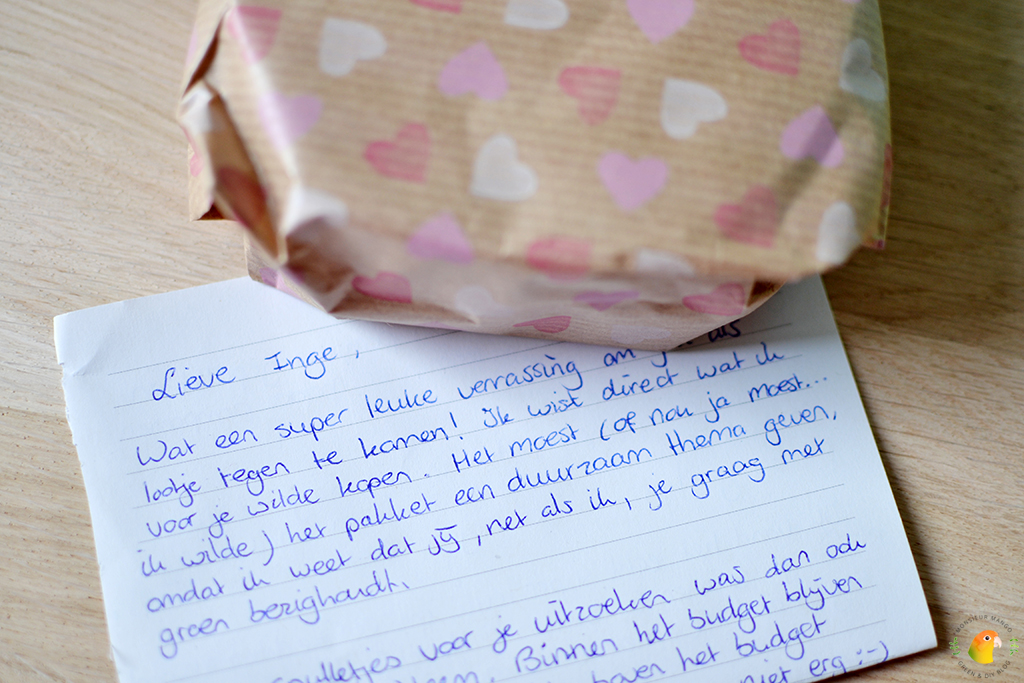 Lieve Inge,
Wat een super leuke verrassing om als
lootje tegen te komen! Ik wist direct wat ik
voor je wilde kopen. Het moest (of nou ja moest...
ik wilde) het pakket een duurzaam thema geven,
omdat ik weet dat jij, net als ik, je graag met
groen bezighoudt.
voor je uitzoeken was dan ook
Binnen het budget blijven
boven het budget
niet erg :-)
MONSIEUR MANGO
GREEN & DIY BLOG